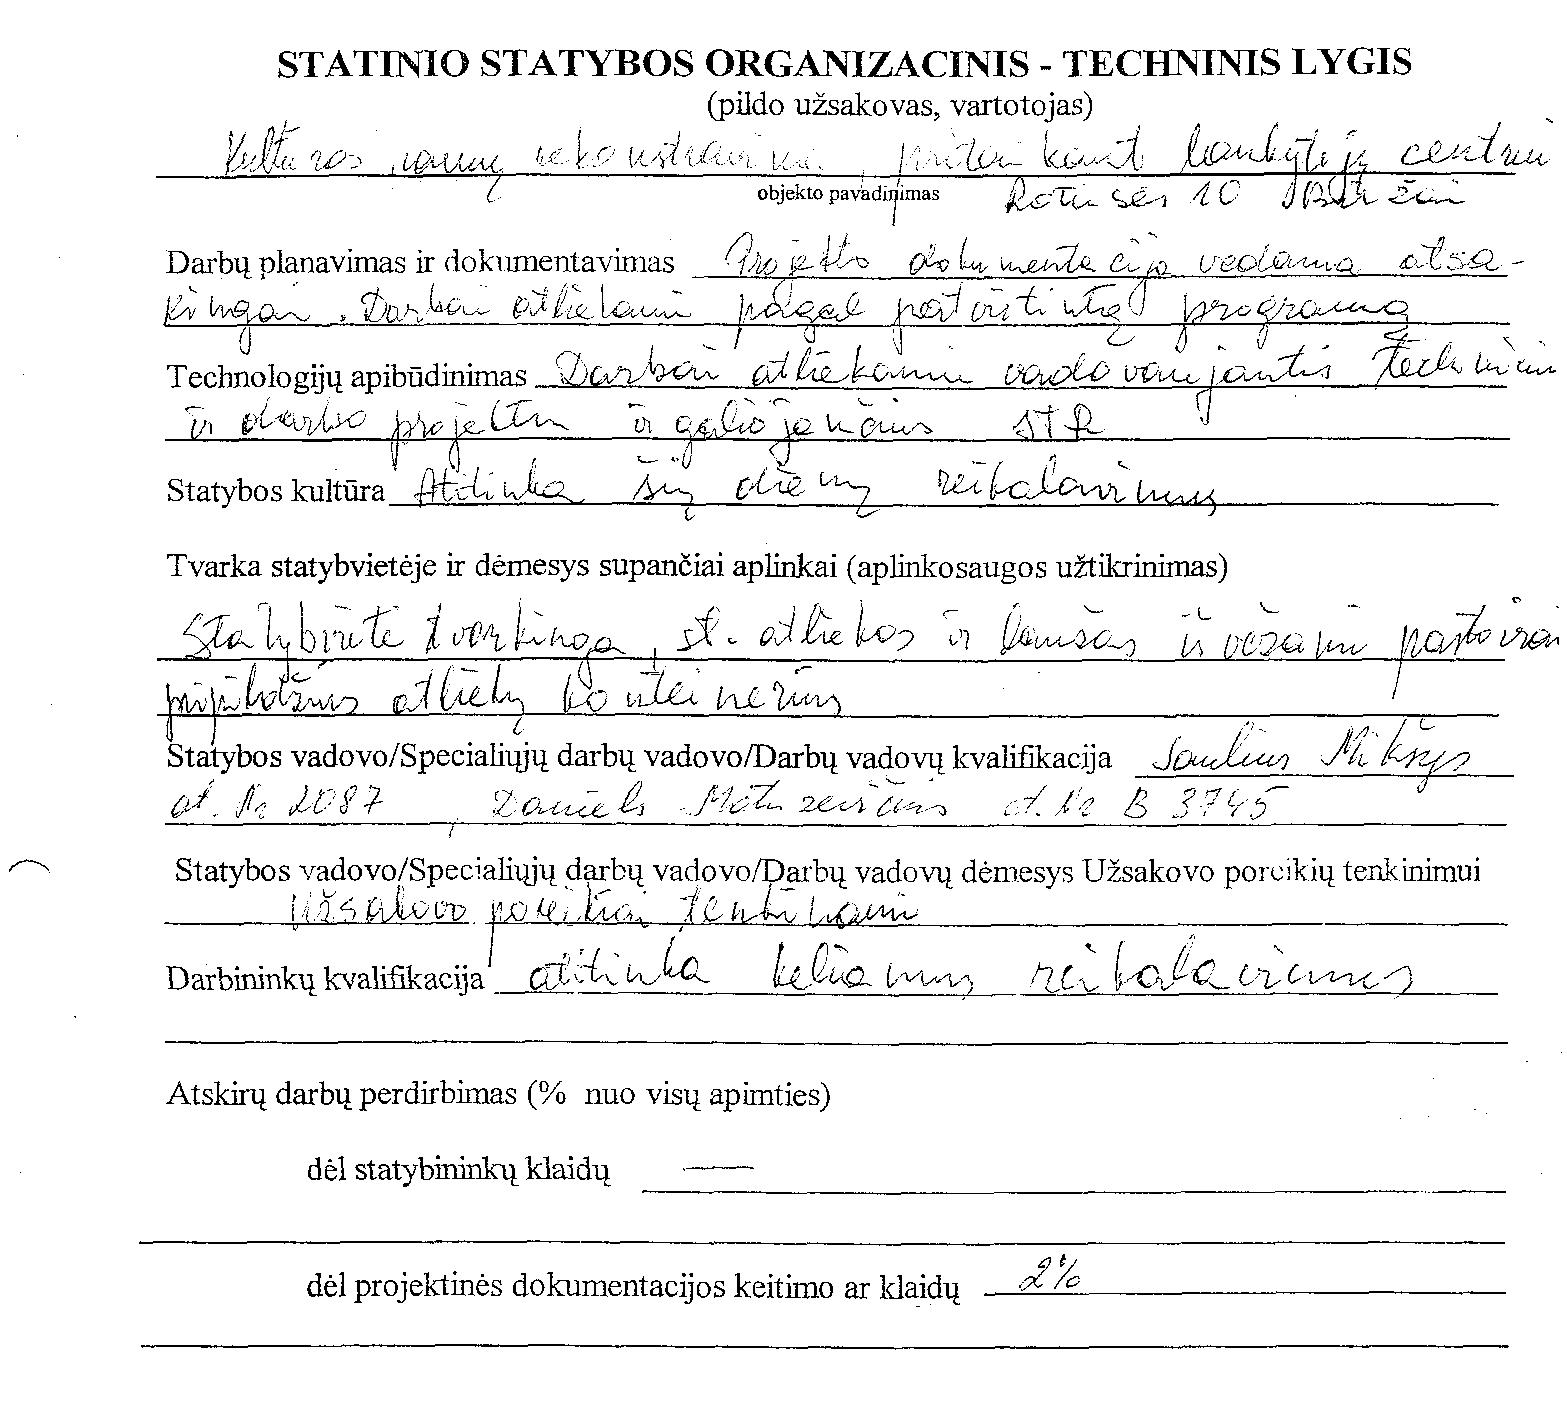 STATINIO STATYBOS ORGANIZACINIS - TECHNINIS LYGIS
(pildo užsakovas, vartotojas)
Kultūros namų rekonstravimas, pritaikant lankytojų centrui
objekto pavadinimas Rotušės 10 Biržai
Darbų planavimas ir dokumentavimas Projekto dokumentacija vedama atsa-
kingai. Darbai atliekami pagal patvirtintą programą
Technologijų apibūdinimas Darbai atliekami vadovaujantis techniniu
ir darbo projektu ir galiojančiais STR
Statybos kultūra Atitinka šių dienų reikalavimus
Tvarka statybvietėje ir dėmesys supančiai aplinkai (aplinkosaugos užtikrinimas)
Statybvietė tvarkinga, st. atliekos ir laužas išvežami pastoviai
pripildžius atliekų konteinerius
Statybos vadovo/Specialiųjų darbų vadovo/Darbų vadovų kvalifikacija Saulius Mikšys
at. Nr 2087, Daniels at. Nr B 3745
Statybos vadovo/Specialiųjų darbų vadovo/Darbų vadovų dėmesys Užsakovo poreikių tenkinimui
Užsakovo poreikiai tenkinami
Darbininkų kvalifikacija atitinka keliamus reikalavimus
Atskirų darbų perdirbimas (% nuo visų apimties)
dėl statybininkų klaidų —
dėl projektinės dokumentacijos keitimo ar klaidų 2%